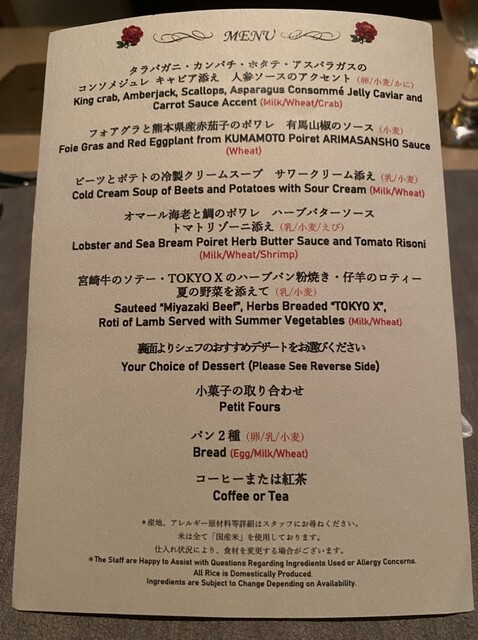 MENU
タラバガニ・カンパチ・ホタテ・アスパラガスの
コンソメジュレ キャビア添え　人参ソースのアクセント（卵/小麦/かに）
King crab, Amberjack, Scallops, Asparagus Consommé Jelly Caviar and
Carrot Sauce Accent (Milk/Wheat/Crab)
フォアグラと熊本県産赤茄子のポワレ　有馬山椒のソース（小麦）
Foie Gras and Red Eggplant from KUMAMOTO Poiret ARIMASANSHO Sauce
(Wheat)
ビーツとポテトの冷製クリームスープ　サワークリーム添え（乳/小麦）
Cold Cream Soup of Beets and Potatoes with Sour Cream (Milk/Wheat)
オマール海老と鯛のポワレ　ハーブバターソース
トマトリゾーニ添え（乳/小麦/えび）
Lobster and Sea Bream Poiret Herb Butter Sauce and Tomato Risoni
(Milk/Wheat/Shrimp)
宮崎牛のソテー・TOKYO Xのハーブパン粉焼き・仔羊のロティー
夏の野菜を添えて（乳/小麦）
Sauteed "Miyazaki Beef", Herbs Breaded "TOKYO X",
Roti of Lamb Served with Summer Vegetables (Milk/Wheat)
裏面よりシェフのおすすめデザートをお選びください
Your Choice of Dessert (Please See Reverse Side)
小菓子の取り合わせ
Petit Fours
パン２種（卵/乳/小麦）
Bread (Egg/Milk/Wheat)
コーヒーまたは紅茶
Coffee or Tea
＊産地、アレルギー原材料等詳細はスタッフにお尋ねください。
米は全て「国産米」を使用しております。
仕入れ状況により、食材を変更する場合がございます。
＊The Staff are Happy to Assist with Questions Regarding Ingredients Used or Allergy Concerns.
All Rice is Domestically Produced.
Ingredients are Subject to Change Depending on Availability.